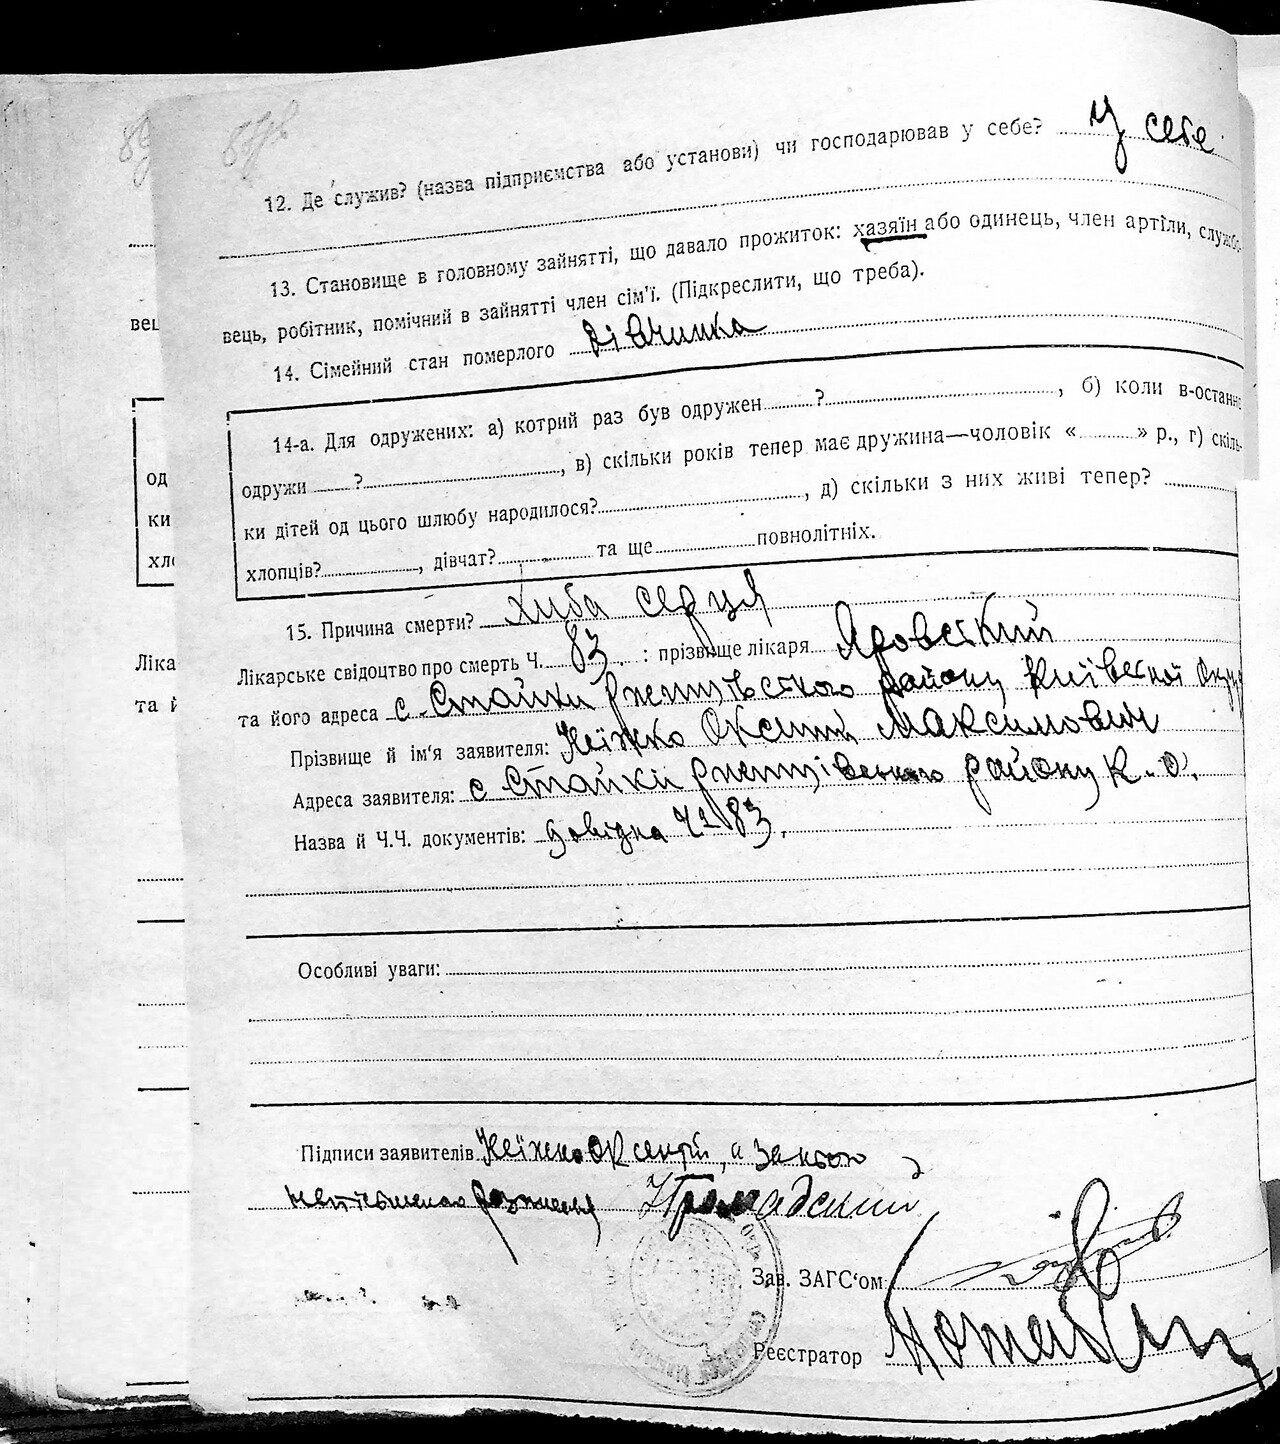 12. Де служив? (назва підприємства або установи) чи господарював у себе? У себе
13. Становище в головному зайнятті, що давало прожиток: хазяїн або одинець, член артіли, службо-
вець, робітник, помічний в зайнятті член сім'ї. (Підкреслити, що треба).
14. Сімейний стан померлого дівчинка
14-а. Для одружених: а) котрий раз був одружен ? , б) коли в-останнє
одружи ? , в) скільки років тепер має дружина—чоловік « » р., г) скіль-
ки дітей од цього шлюбу народилося? , д) скільки з них живі тепер?
хлопців? , дівчат? та ще повнолітніх.
15. Причина смерти? хиба серця
Лікарське свідоцтво про смерть Ч. 83. : прізвище лікаря Яровський
та його адреса с. Стайки Ржищівского району Київської Округ
Прізвище й ім'я заявителя: Неїжко Оксентій Максимович
Адреса заявителя: с Стайки Ржищівського району К. О.
Назва й Ч.Ч. документів: довідка Ч 83.
Особливі уваги:
Підписи заявителів Неїжко Оксентій, а за його
неписьменого розписався Громадський
Зав. ЗАГС'ом
Реєстратор
вец
од
ки
хл
Ліка
та й